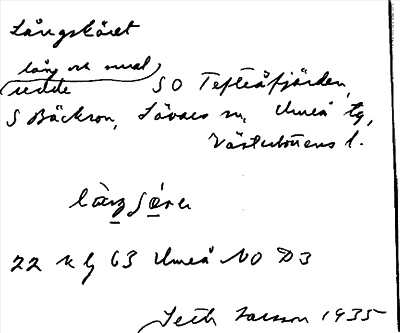 Långskäret
lång och smal
udde SO Tefteåfjärden,
S Bäckson, Sävars sn, Umeå tg,
Västerbottens l.
làŋ ʃǽrə
22 k g 63 Umeå NO D3
Seth Larsson 1935